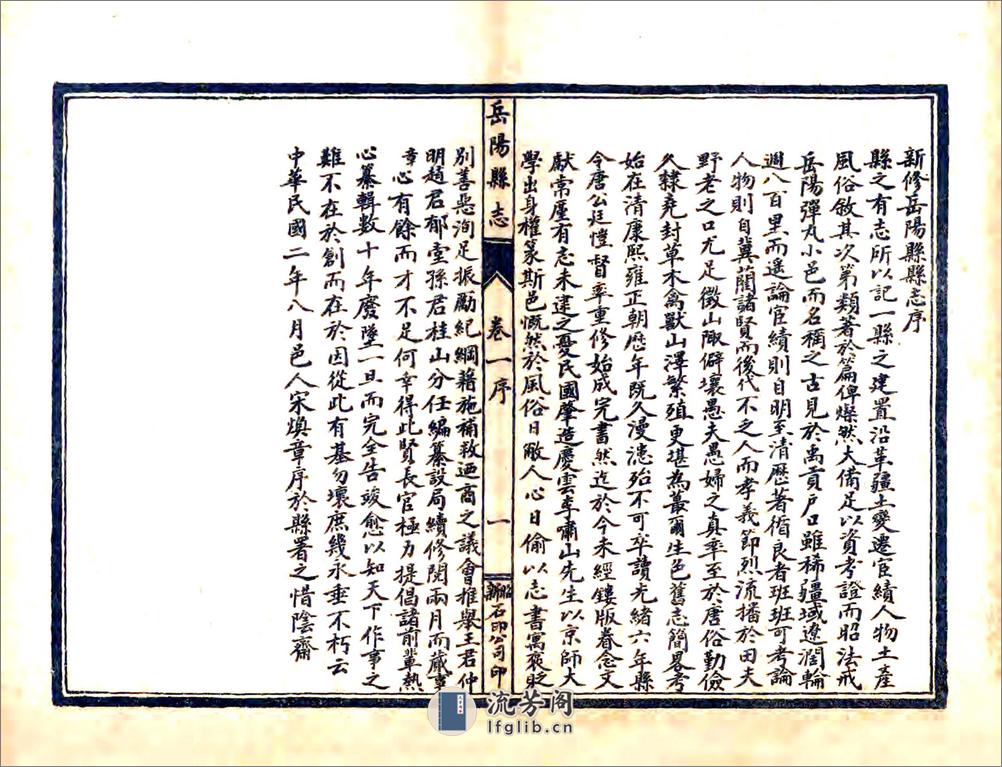 新修岳陽縣縣志序
縣之有志所以記一縣之建置沿革疆土變遷宦績人物土產
風俗敘其次第類著於篇俾燦然大備足以資考證而昭法戒
岳陽彈丸小邑而名稱之古見於禹貢戶口雖稀疆域遼濶輪
週八百里而遙論宦績則自明至清歷著循良者班班可考論
人物則自冀藺諸賢而後代不乏人而孝義節烈流播於田夫
野老之口尤足徵山陬僻壤愚夫愚婦之真率至於唐俗勤儉
久隸堯封草木禽獸山澤繁殖更堪為蕞爾生色舊志簡畧考
始在清康熙雍正朝歷年既久漫漶殆不可卒讀光緒六年縣
令唐公廷愷督率重修始成完書然迄於今未經鏤版眷念文
獻常廑有志未逮之憂民國肇造慶雲李嘯山先生以京師大
學出身權篆斯邑慨然於風俗日敝人心日偷以志書寓褒貶
岳陽縣志
卷一序
一
新石印公司印
別善惡洵足振勵紀綱藉施補救迺商之議會推舉王君仲
明趙君郁堂孫君桂山分任編纂設局續修閱兩月而蕆事
章心有餘而才不足何幸得此賢長官極力提倡諸前輩熱
心纂輯數十年廢墜一旦而完全告竣愈以知天下作事之
難不在於創而在於因從此有基勿壞庶幾永垂不朽云
中華民國二年八月邑人宋煥章序於縣署之惜陰齋
流芳阁
lfglib.cn